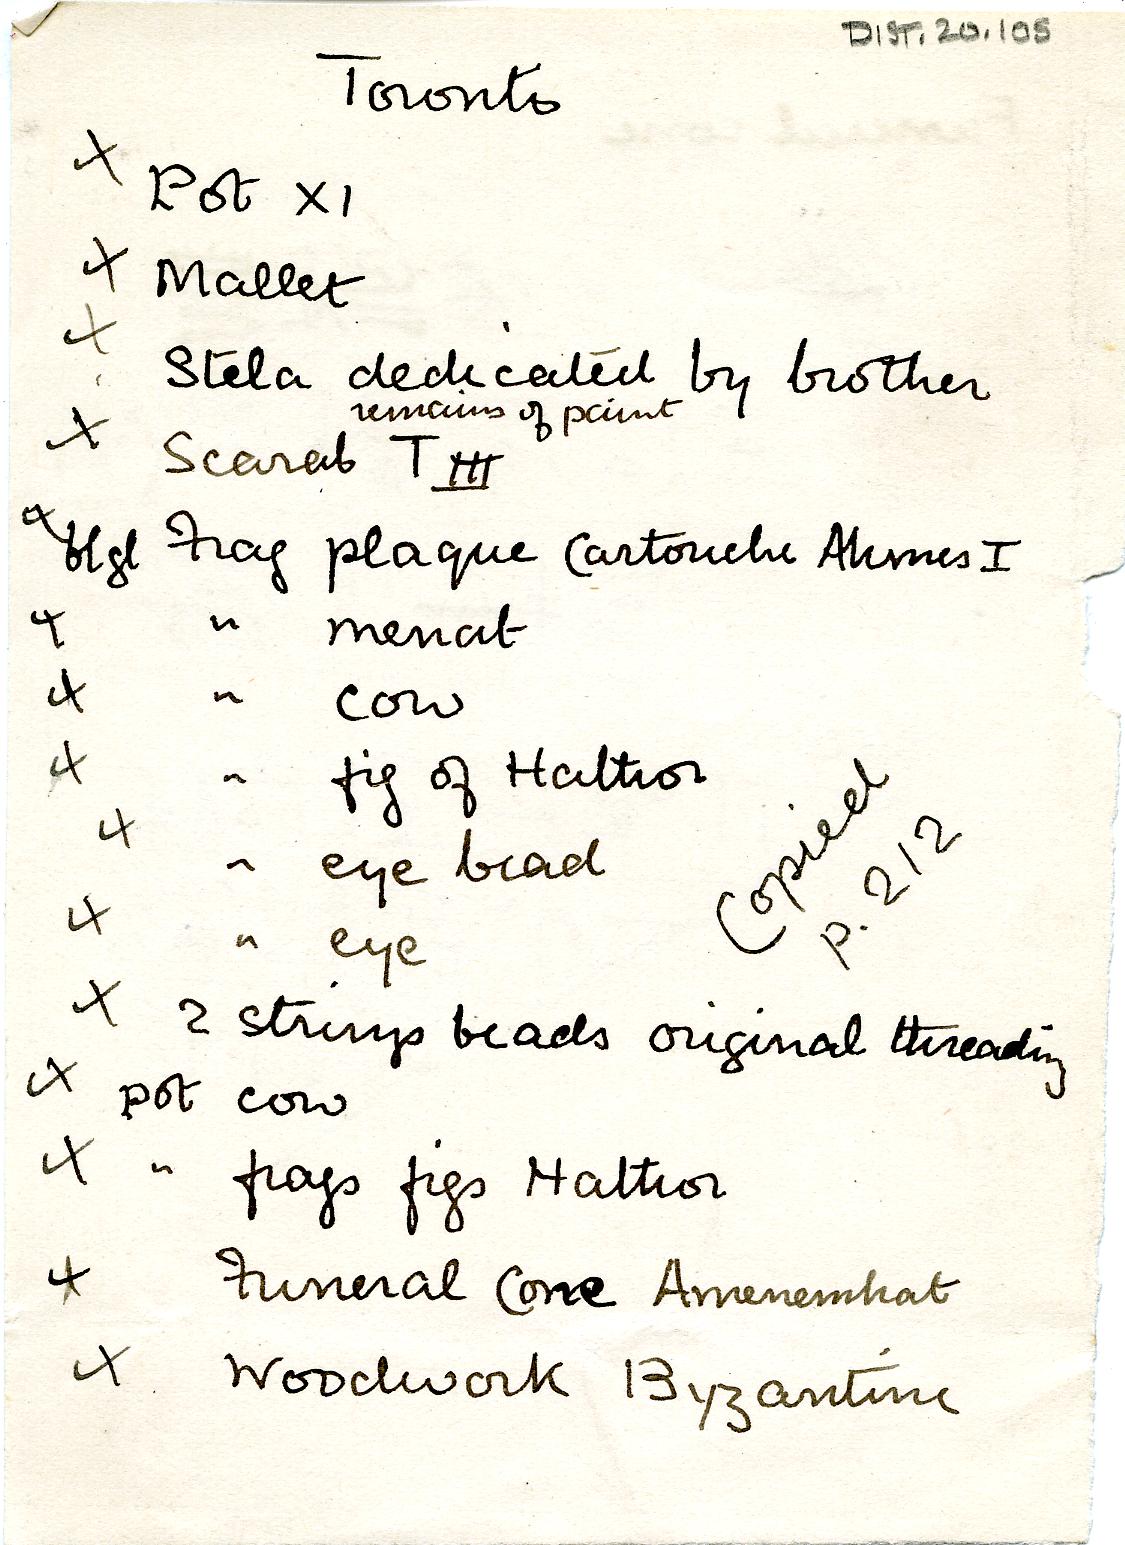 DIST. 20.105
Toronto
x Pot XI
x Mallet
x Stela dedicated by brother
remains of paint
x Scarab T III
x blgl Frag plaque Cartouche Ahmes I
x " menat
x " cow
x " fig of Hathor
x " eye bead
x " eye
Copied
p. 212
x 2 strings beads original threading
x pot cow
x " frags figs Hathor
x Funeral Cone Amenemhat
x Woodwork Byzantine